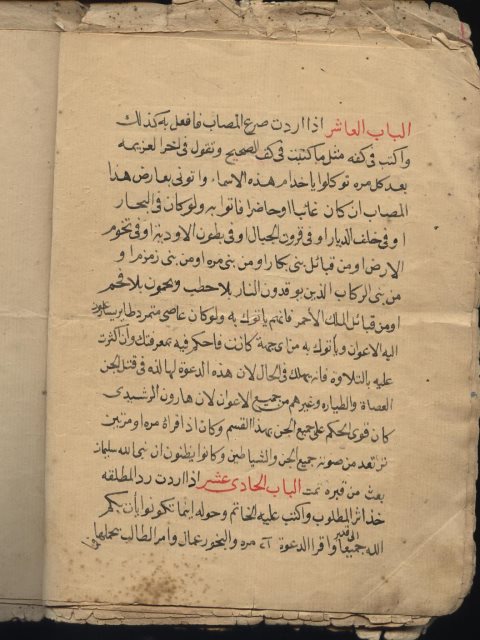 الباب العاشر اذا اردت صرع المصاب فافعل به كذلك
واكتب فى كفه مثل ما كتبت فى كف الصحيح وتقول فى اخر العزيمه
بعد كل مره توكلوا ياخدام هذه الاسماء واتونى بعارض هذا
المصاب ان كان غائبا او حاضرا فاتوا به ولو كان فى البحار
او فى خلف الديار او فى قرون الجبال او فى بطون الاودية او فى تخوم
الارض او من قبائل بنى او من بنى مره او من بنى زمزم او
من بنى الركاب الذين يوقدون النار بلا حطب ويحمون بلا فحم
او من قبائل الملك الأحمر فانهم يأتوك به ولو كان عاصى متمرد طاير
اليه الاعوان ويأتوك به من اى جهة كانت فاحكم فيه بمعرفتك وان اكثرت
عليه بالتلاوه فانه يهلك فى الحال لان هذه الدعوة لها لذه فى قتل الجن
العصاة والطياره وغيرهم من جميع الاعوان لان هارون الرشيدى
كان قوى الحكم على جميع الجن بهذا القسم وكان اذا قراه مره او مرتين
ترتعد من صوته جميع الجن والشياطين وكانوا يظنون ان نبى الله سليمان
بعث من قبره تمت الباب الحادى عشر اذا اردت رد المطلقه
خذ اثر المطلوب واكتب عليه الخاتم وحوله اينما تكونوا يأت بكم
الله جميعا واقرا الدعوة مره والبخور عمال وامر الطالب بحملها